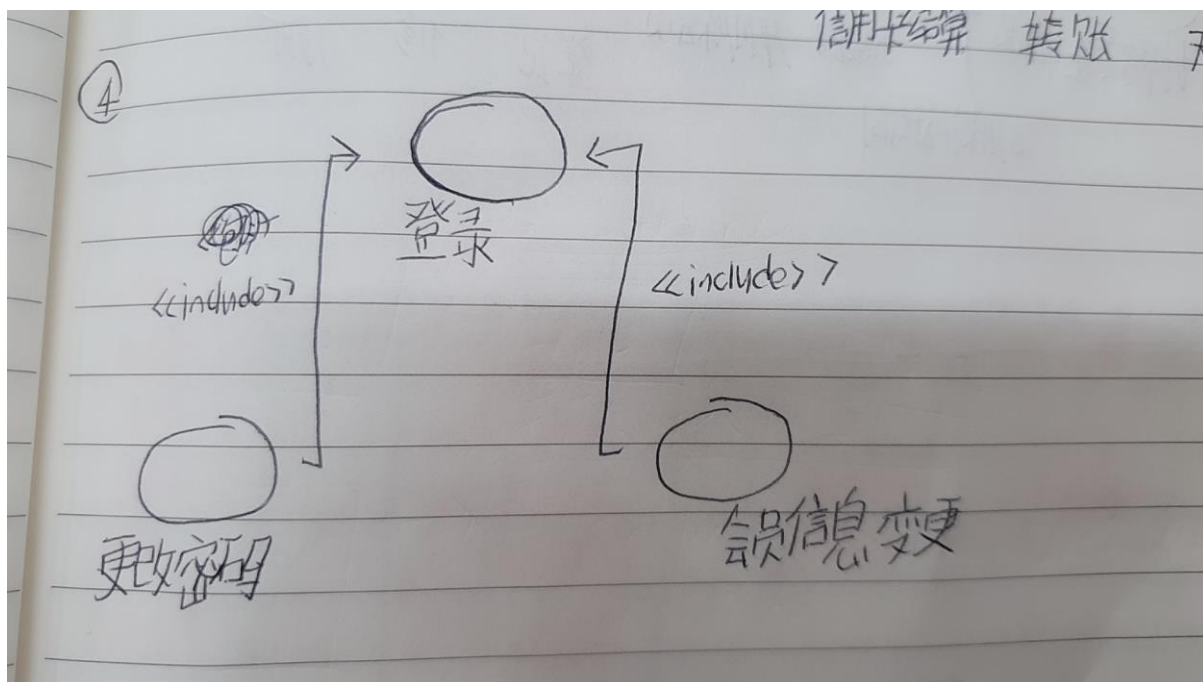 信用卡结算 转账
④
登录
<<include>>
<<include>>
更改密码
会员信息变更